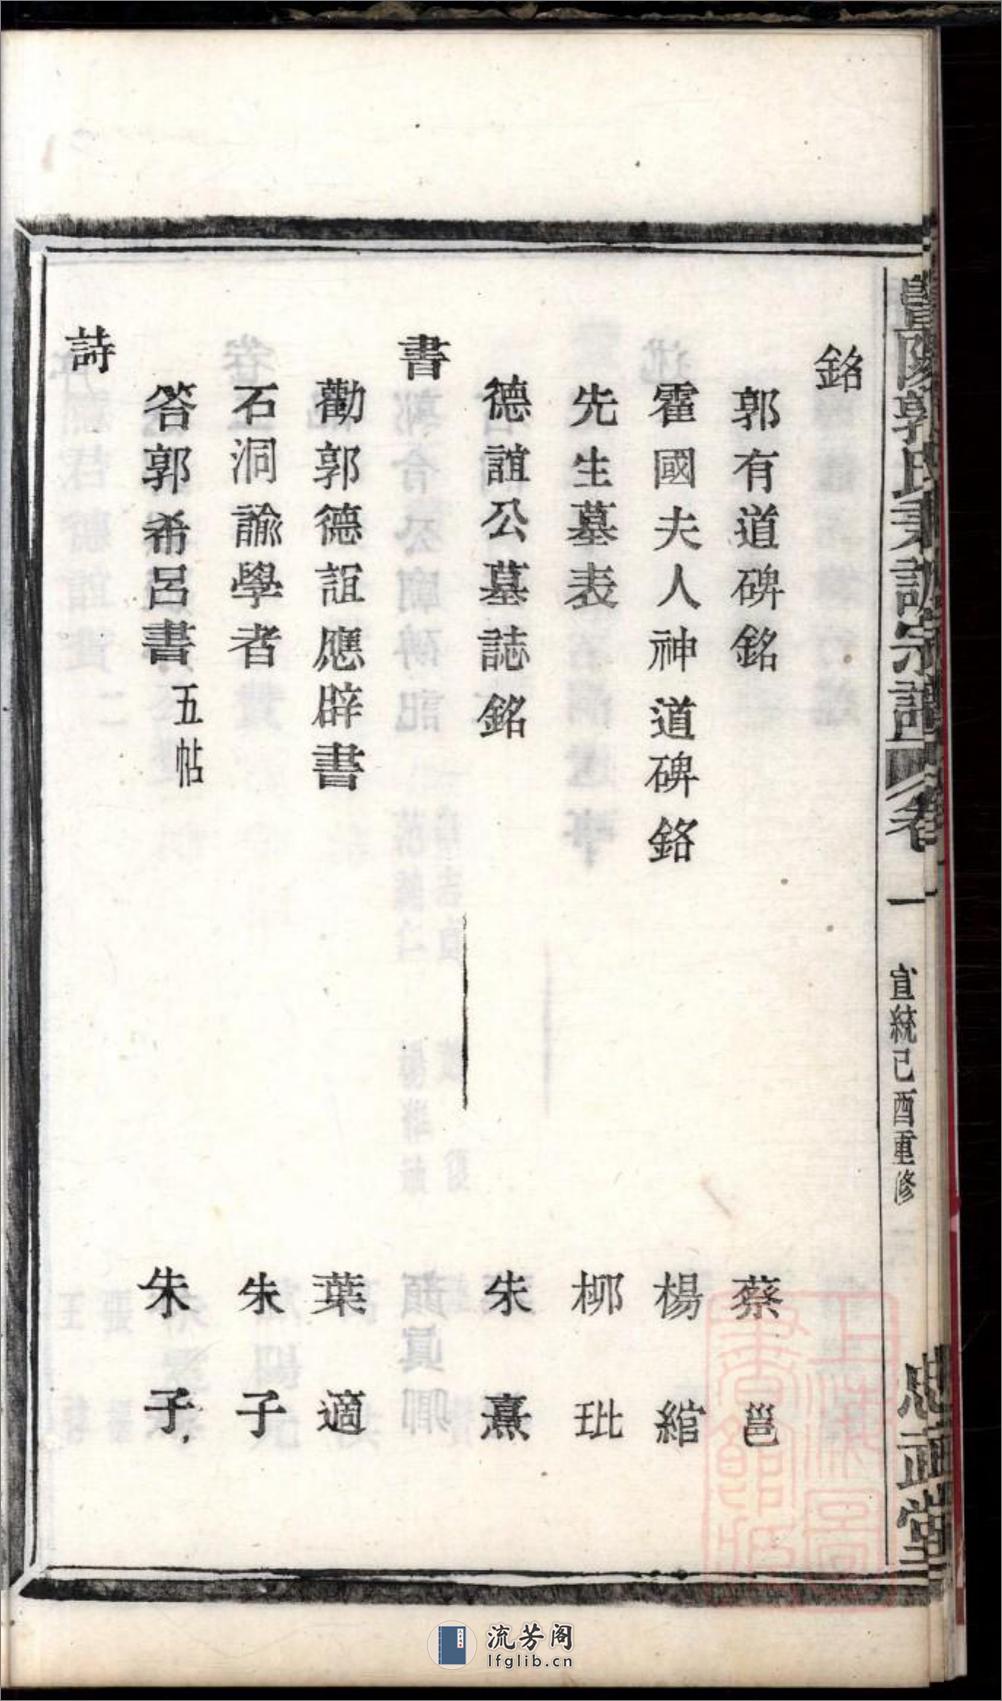 暨陽郭氏秉訓宗譜 卷一 宣統己酉重修 忠武堂
銘
郭有道碑銘 蔡邕
霍國夫人神道碑銘 楊綰
先生墓表 栁玭
德誼公墓誌銘 朱熹
書
勸郭德誼應辟書 葉適
石洞諭學者 朱子
答郭希呂書 五帖 朱子
詩
流芳阁
lfglib.cn